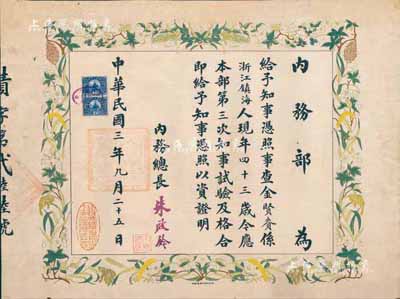 內務部 為
給予知事憑照事查金賢寀係
浙江鎮海人現年四十三歲今應
本部第三次知事試驗及格合
即給予知事憑照以資證明
內務總長 朱啟鈐
中華民國三年九月二十五日
字第貳 陸陸號